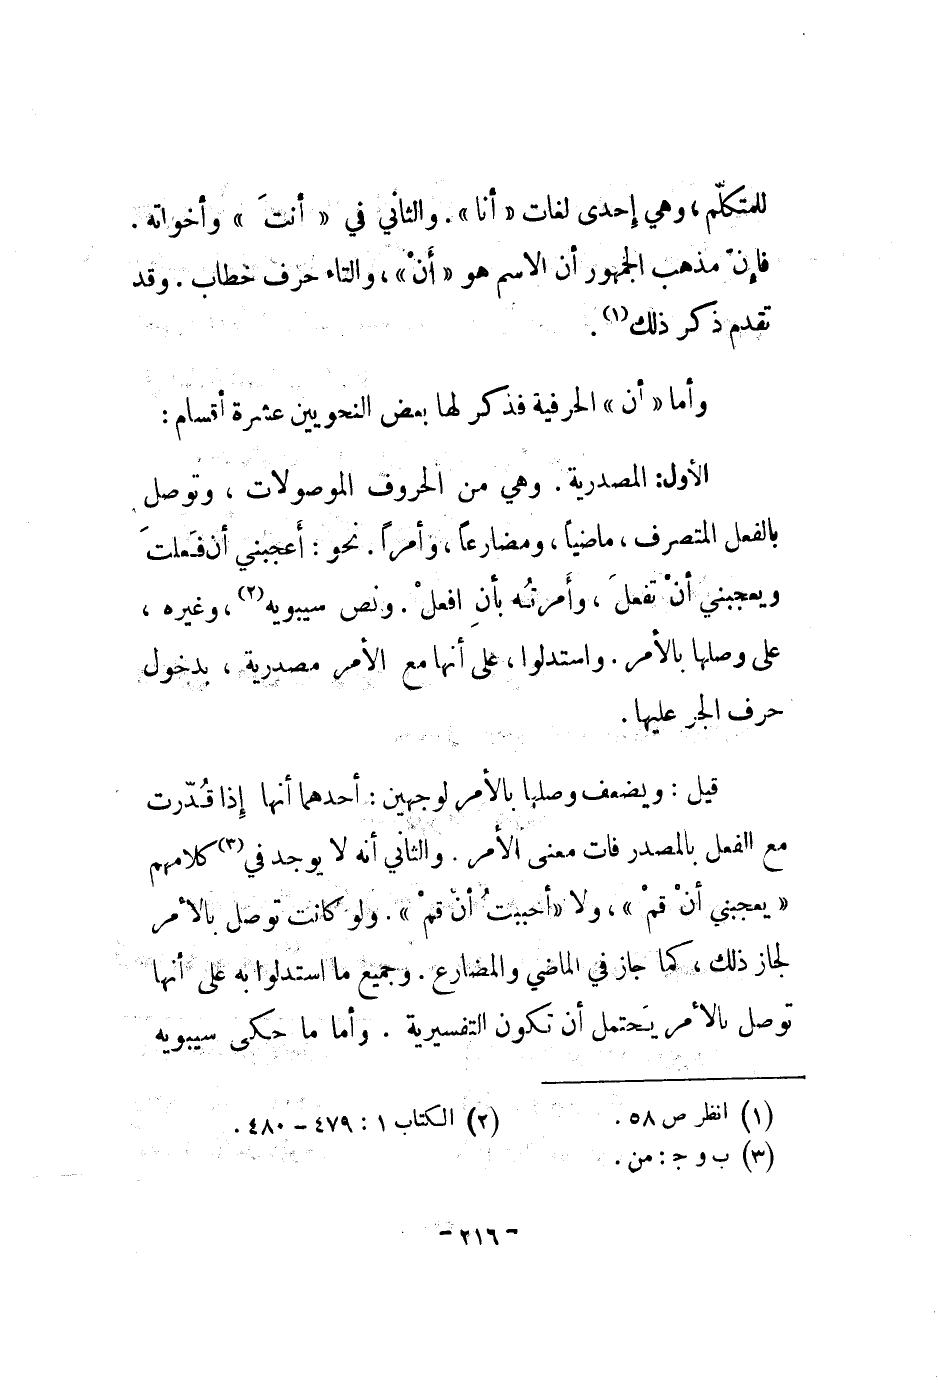 للمتكلّم ، وهي إحدى لغات « أنا » . والثاني في « أنتَ » وأخواته .
فإنّ مذهب الجمهور أن الاسم هو « أَنْ » ، والتاء حرف خطاب . وقد
تقدم ذكر ذلك(١) .
وأما « أن » الحرفية فذكر لها بعض النحويين عشرة أقسام :
الأول: المصدرية . وهي من الحروف الموصولات ، وتوصل
بالفعل المتصرف ، ماضياً ، ومضارعاً ، وأمراً . نحو : أَعجبني أن فَعلتَ
ويعجبني أنْ تفعلَ ، وأَمرتُه بأنِ افعلْ . ونص سيبويه(٢) ، وغيره ،
على وصلها بالأمر . واستدلوا ، على أنها مع الأمر مصدرية ، بدخول
حرف الجر عليها .
قيل : ويضعف وصلها بالأمر لوجهين : أحدهما أنها إذا قُدّرت
مع الفعل بالمصدر فات معنى الأمر . والثاني أنه لا يوجد في(٣) كلامهم
« يعجبني أنْ قمْ » ، ولا « أحببتُ أنْ قمْ » . ولو كانت توصل بالأمر
لجاز ذلك ، كما جاز في الماضي والمضارع . وجميع ما استدلوا به على أنها
توصل بالأمر يَحتمل أن تكون التفسيرية . وأما ما حكى سيبويه
(١) انظر ص ٥٨ . (٢) الكتاب ١ : ٤٧٩ – ٤٨٠ .
(٣) ب و ج : من .
– ٢١٦ –